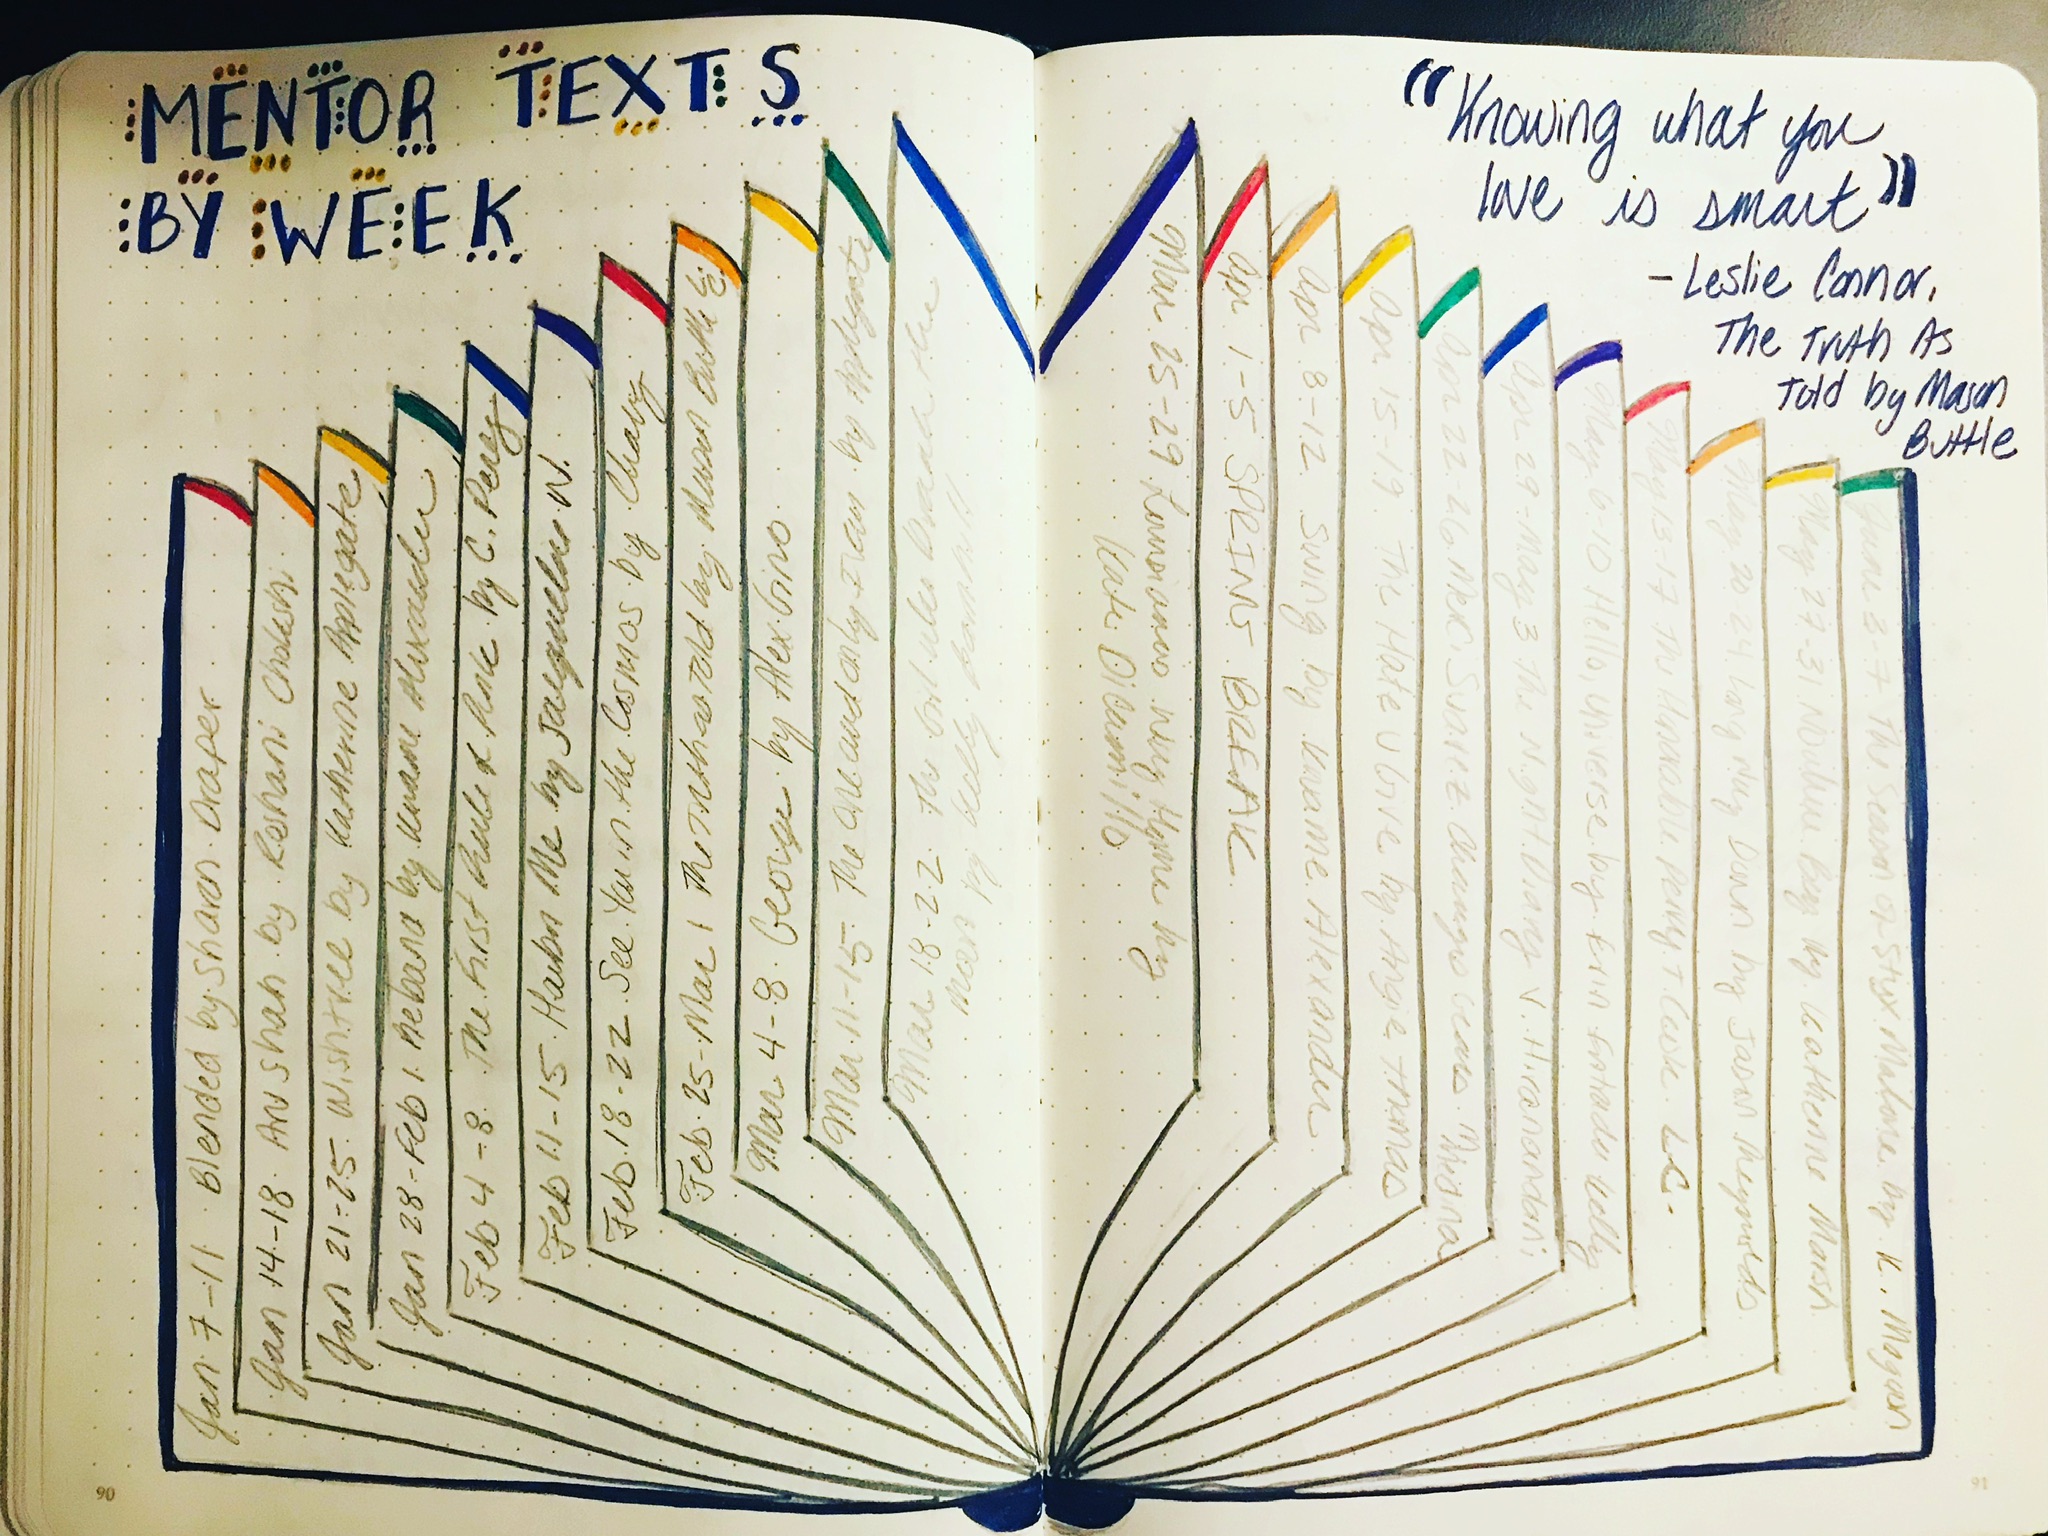 MENTOR TEXTS
BY WEEK
Jan 7-11 Blended by Sharon Draper
Jan 14-18 Aru Shah by Roshani Chokshi
Jan 21-25 Wishtree by Katherine Applegate
Jan 28-Feb 1 Rebound by Kwame Alexander
Feb 4-8 The First Rule of Punk by C. Perez
Feb 11-15 Harbor Me by Jacqueline W.
Feb 18-22 See You in the Cosmos by Cheng
Feb 25-Mar 1 The Truth as told by Mason Buttle LC
Mar 4-8 George by Alex Gino
Mar 11-15 The One and Only Ivan by Applegate
Mar 18-22 The Girl Who Drank the
Moon by Kelly Barnhill
"Knowing what you
love is smart"
- Leslie Connor,
The Truth As
Told by Mason
Buttle
Mar 25-29 Louisianas Way Home by
Kate DiCamillo
Apr 1-5 SPRING BREAK
Apr 8-12 Swing by Kwame Alexander
Apr 15-19 The Hate U Give by Angie Thomas
Apr 22-26 Merci Suarez Changes Gears Medina
Apr 29-May 3 The Night Diary V. Hiranandani
May 6-10 Hello, Universe by Erin Entrada Kelly
May 13-17 This Perry T Cook LC.
May 20-24 Long Way Down by Jason Reynolds
May 27-31 Nowhere Boy by Katherine Marsh
June 3-7 The Season of Styx Malone by K. Magoon
90
91